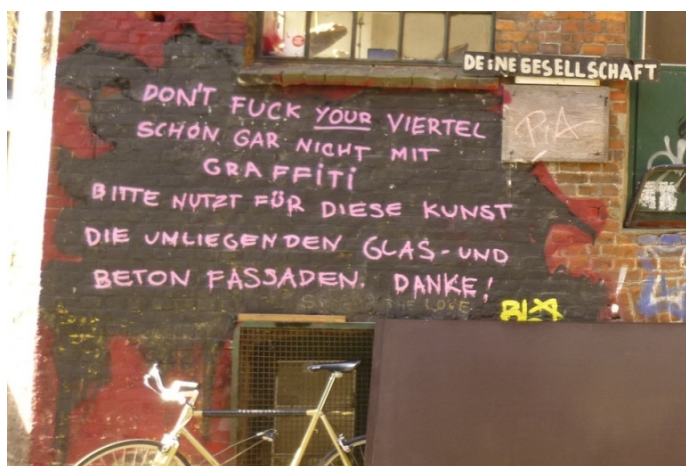 DEINE GESELLSCHAFT
DON'T FUCK YOUR VIERTEL
SCHON GAR NICHT MIT
GRAFFITI
BITTE NUTZT FÜR DIESE KUNST
DIE UMLIEGENDEN GLAS-UND
BETON FASSADEN. DANKE!